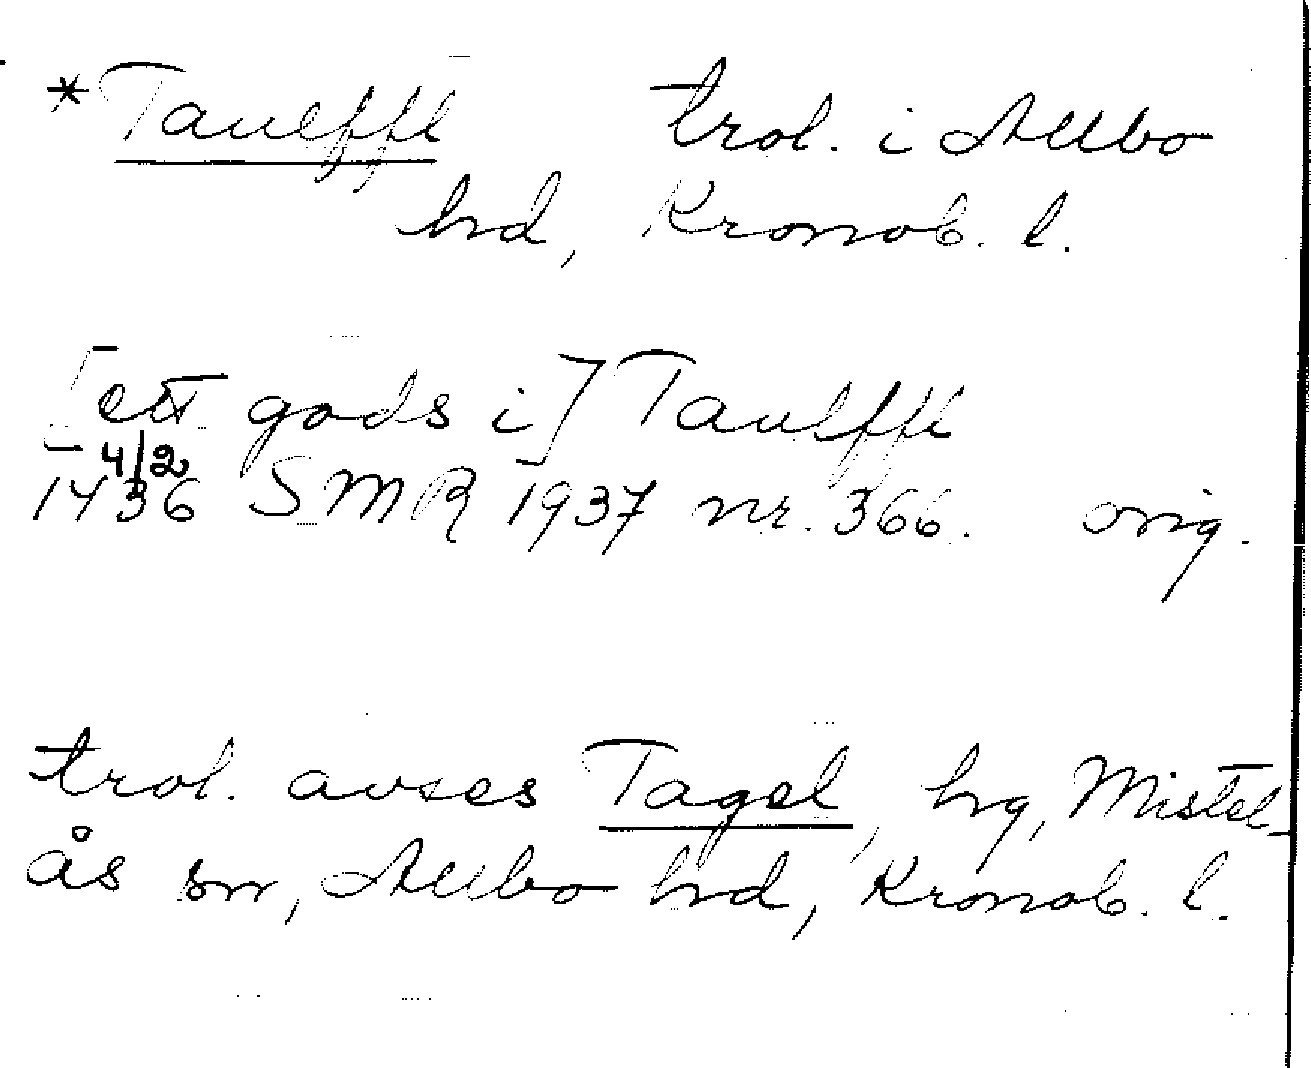 *Taulffl trol. i Allbo
hd, Kronob. l.
[ett gods i] Taulffl
4/2
1436 SMR 1937 nr. 366. orig.
trol. avses Tagel, hg, Mistel-
ås sn, Allbo hd, Kronob. l.